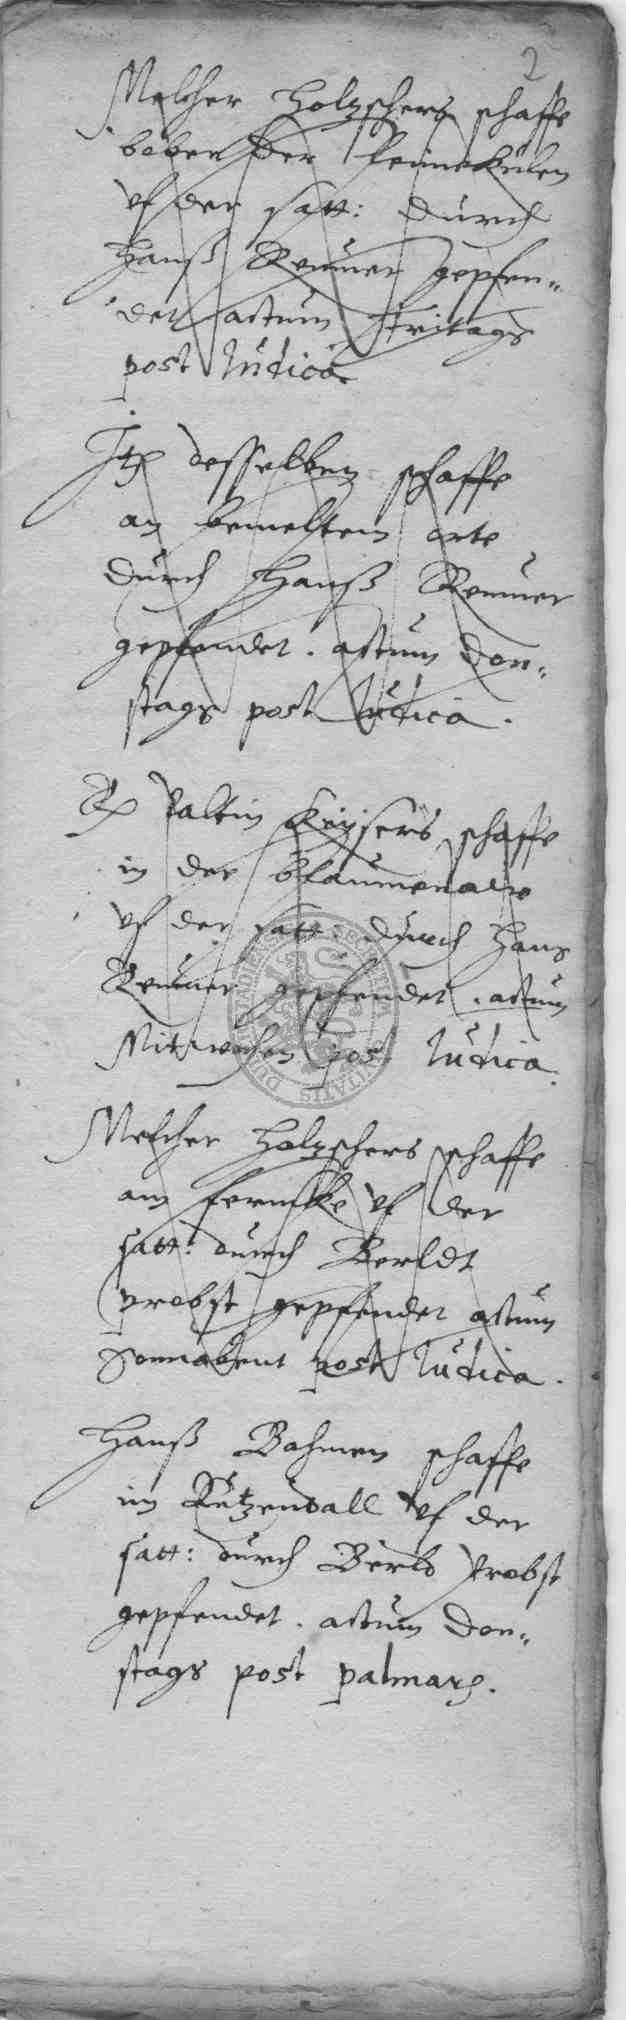 2
Melcher Holzschers schaffe
boben der Leimekulen
uf der satt: durch
Hanß Renner gepfen„
det actum Fritags
post Iudica.
Itē desselben schaffe
an bemeltem orte
durch Hanß Renner
gepfendet. actum Don„
stags post Iudica.
Valtin Keysers schaffe
in der
uf der satt: durch Hans
Renner gepfendet. actum
Mitwochen post Iudica.
Melcher Holzschers schaffe
am uf der
satt: durch Berldt
probst gepfendet actum
Sonnabent post Iudica.
Hanß Bahmen schaffe
im Kutzendall uf der
satt: durch Berld probst
gepfendet. actum Don„
stags post palmarum.